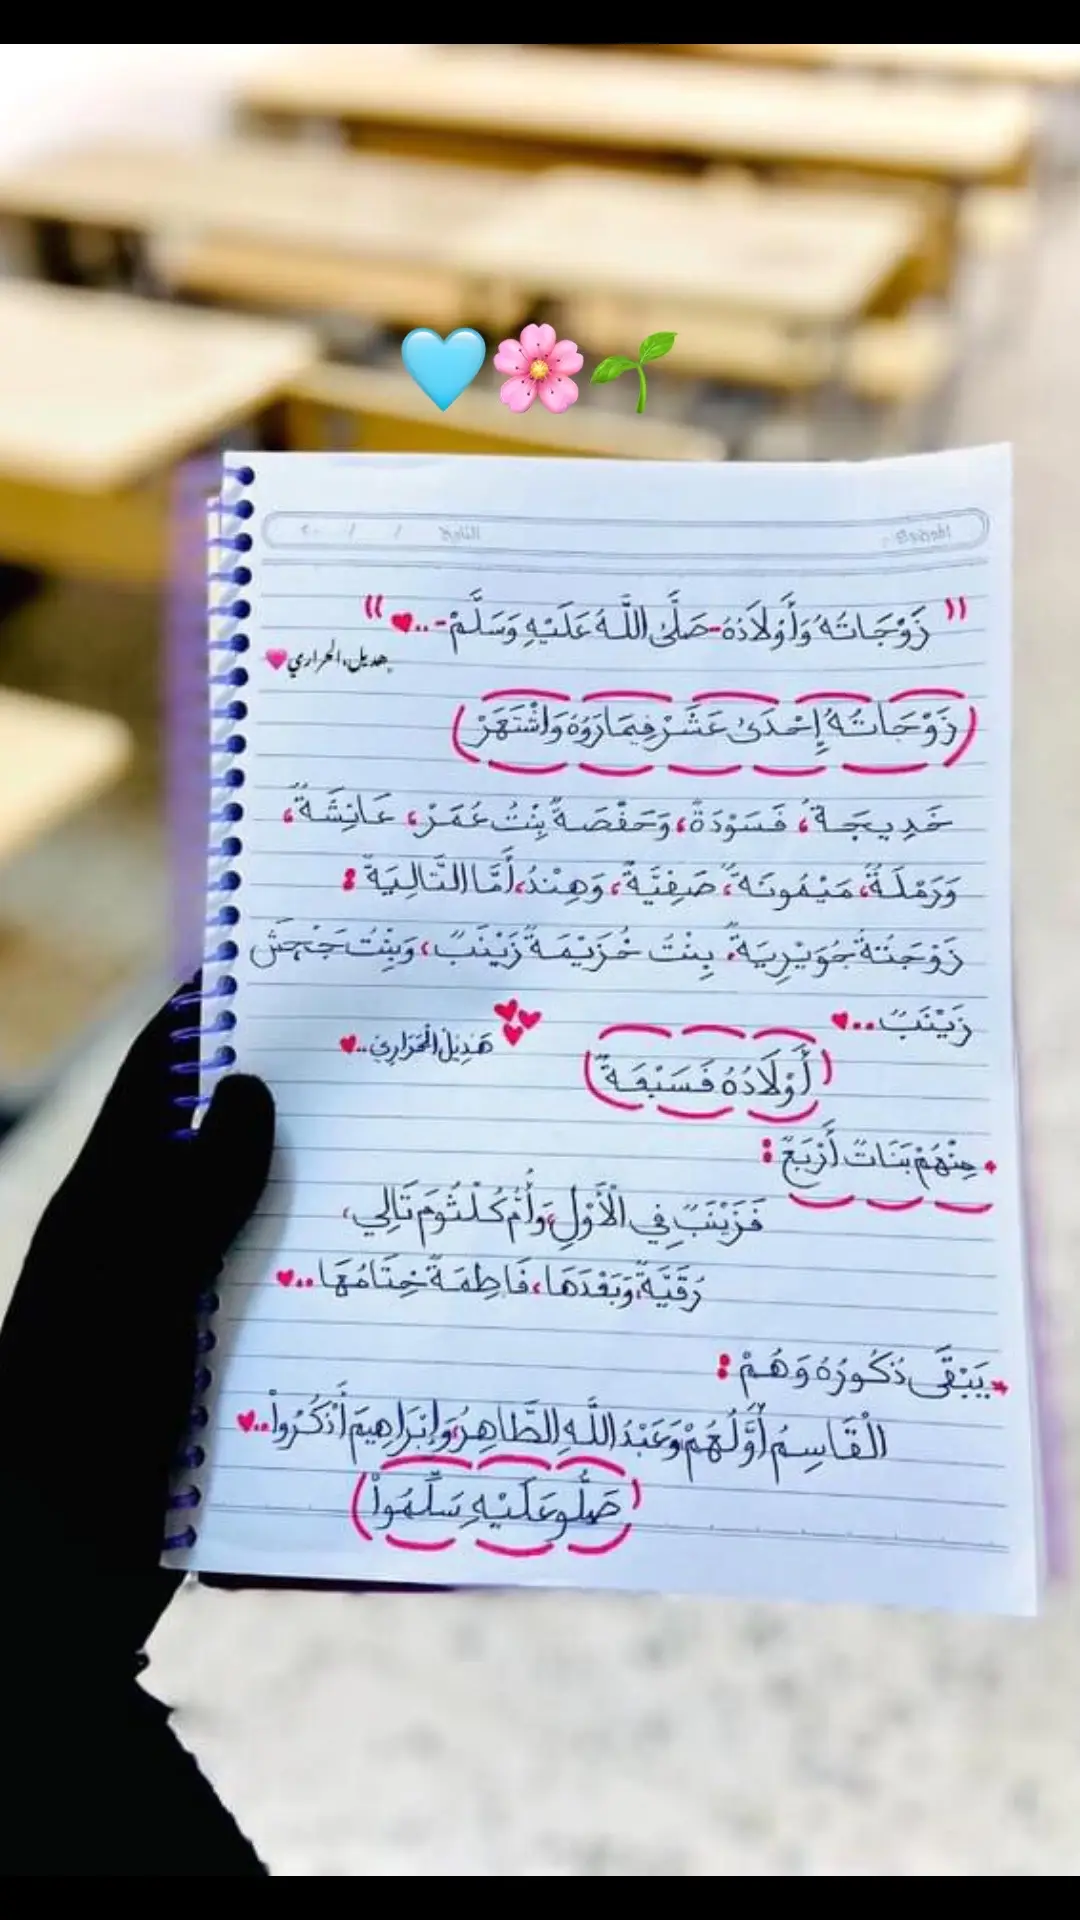 " زَوْجَاتُهُ وَأَوْلَادُهُ -صَلَّى اللَّهُ عَلَيْهِ وَسَلَّمْ-.. "
هديل الحراري
(زَوْجَاتُهُ إِحْدَى عَشَرْ فِيمَا رَوُوْهُ وَاشْتَهَرْ)
خَدِيجَةٌ، فَسَوْدَةٌ، وَحَفْصَةٌ بِنْتُ عُمَرْ، عَائِشَةٌ،
وَرَمْلَةٌ، مَيْمُونَةٌ، صَفِيَّةٌ، وَهِنْدُ، أَمَّا التَّالِيَةٌ :
زَوْجَتُهُ جُوَيْرِيَةٌ. بِنْتُ خُزَيْمَةٌ زَيْنَبٌ، وَبِنْتُ جَحْشٍ
زَيْنَبٌ..
هَدِيْل الْحَرَارِي..
(أَوْلَادُهُ فَسَبْعَةٌ)
مِنْهُمْ بَنَاتٌ أَرْبَعٌ :
فَزَيْنَبٌ فِي الْأَوْلِ، وَأُمُّ كُلْثُومَ تَالِي،
رُقَيَّةٌ، وَبَعْدَهَا، فَاطِمَةٌ خِتَامُهَا..
يَبْقَى ذُكُورُهُ وَهُمْ :
الْقَاسِمُ أَوَّلُهُمْ وَعَبْدُ اللَّهِ الطَّاهِرُ، وَإِبْرَاهِيمَ أَذْكُرُواْ..
(صَلُّو عَلَيْهِ سَلِّمُواْ)